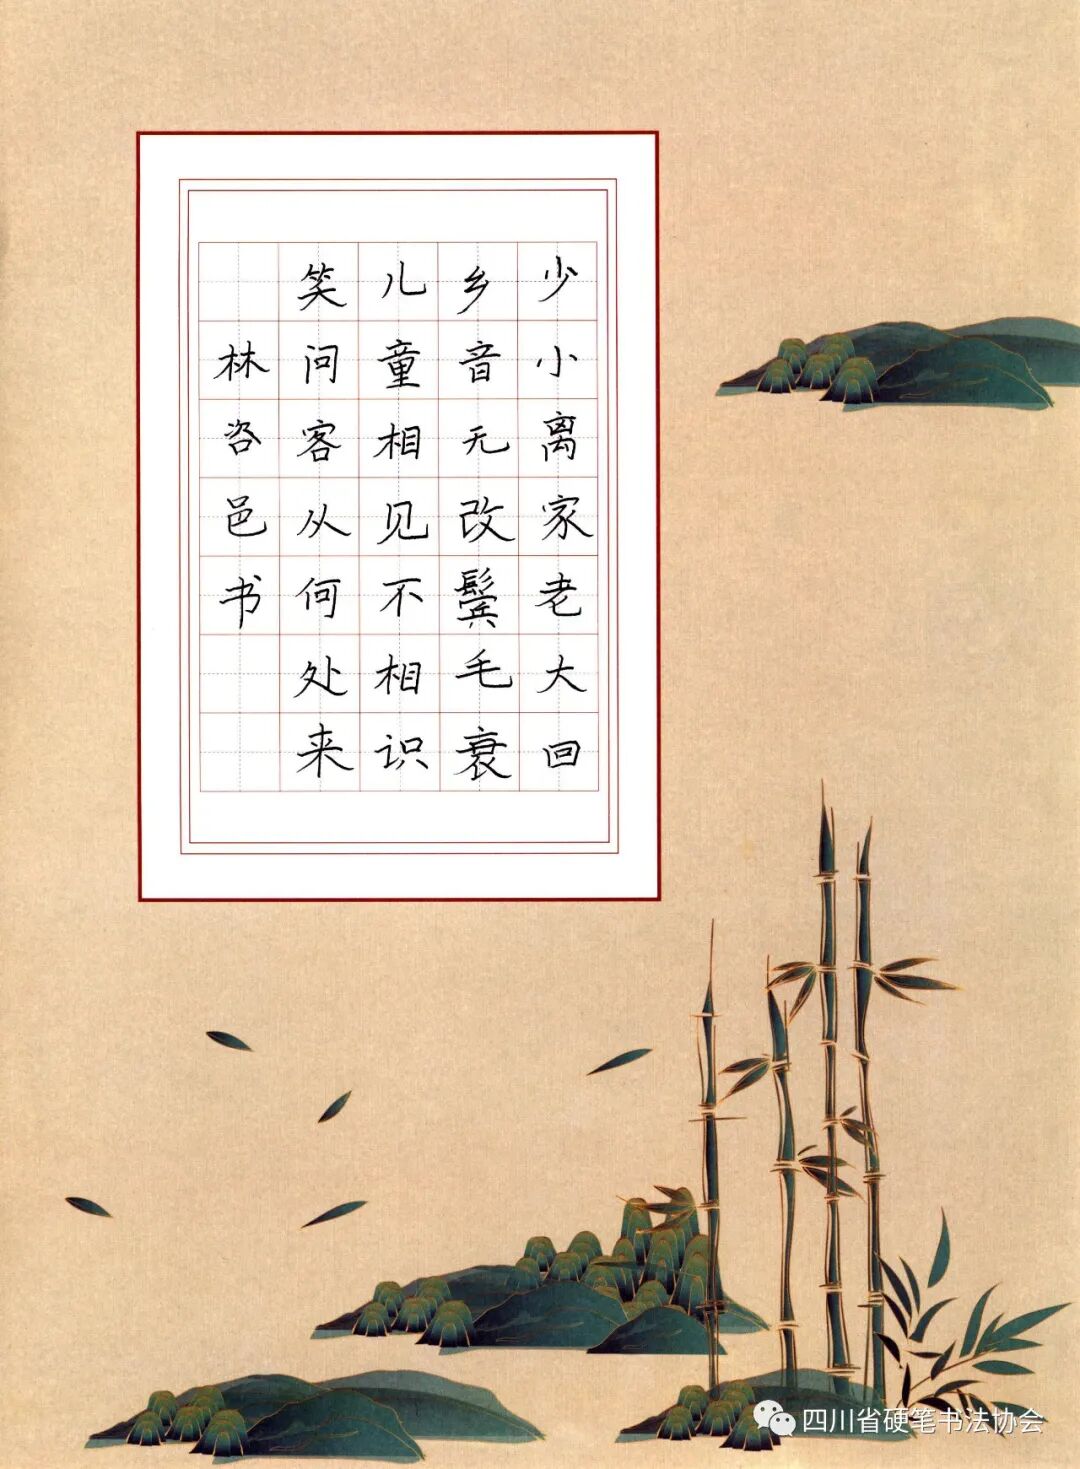 少小离家老大回
乡音无改鬓毛衰
儿童相见不相识
笑问客从何处来
林咨邑书
四川省硬笔书法协会